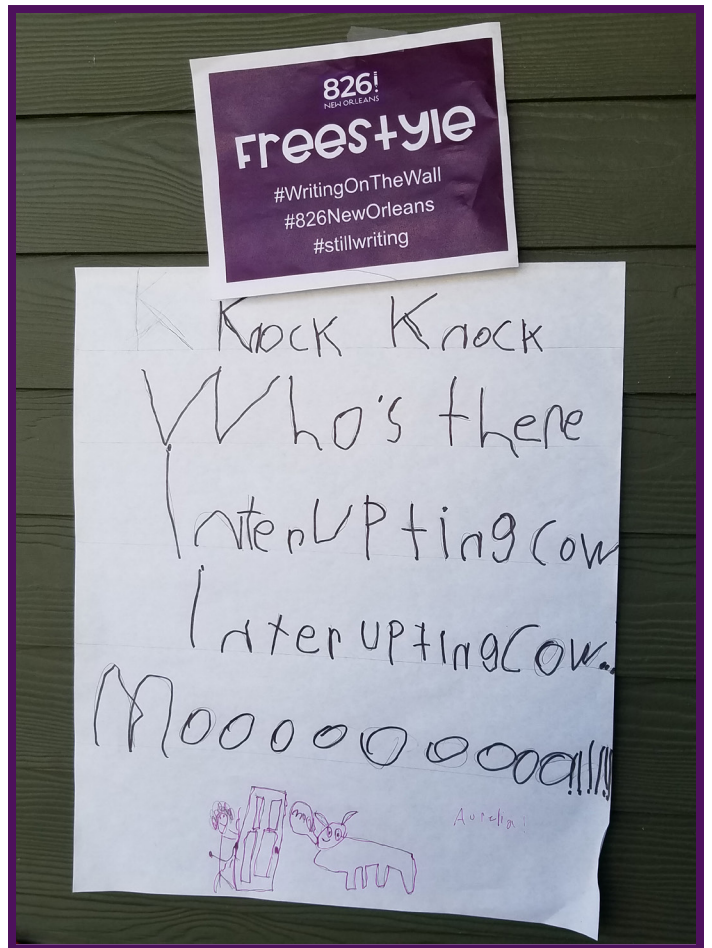 826!
NEW ORLEANS
Freestyle
#WritingOnTheWall
#826NewOrleans
#stillwriting
K Knock Knock
Who's there
Interupting Cow
Interupting Cow...
Mooooooooooo!!!!